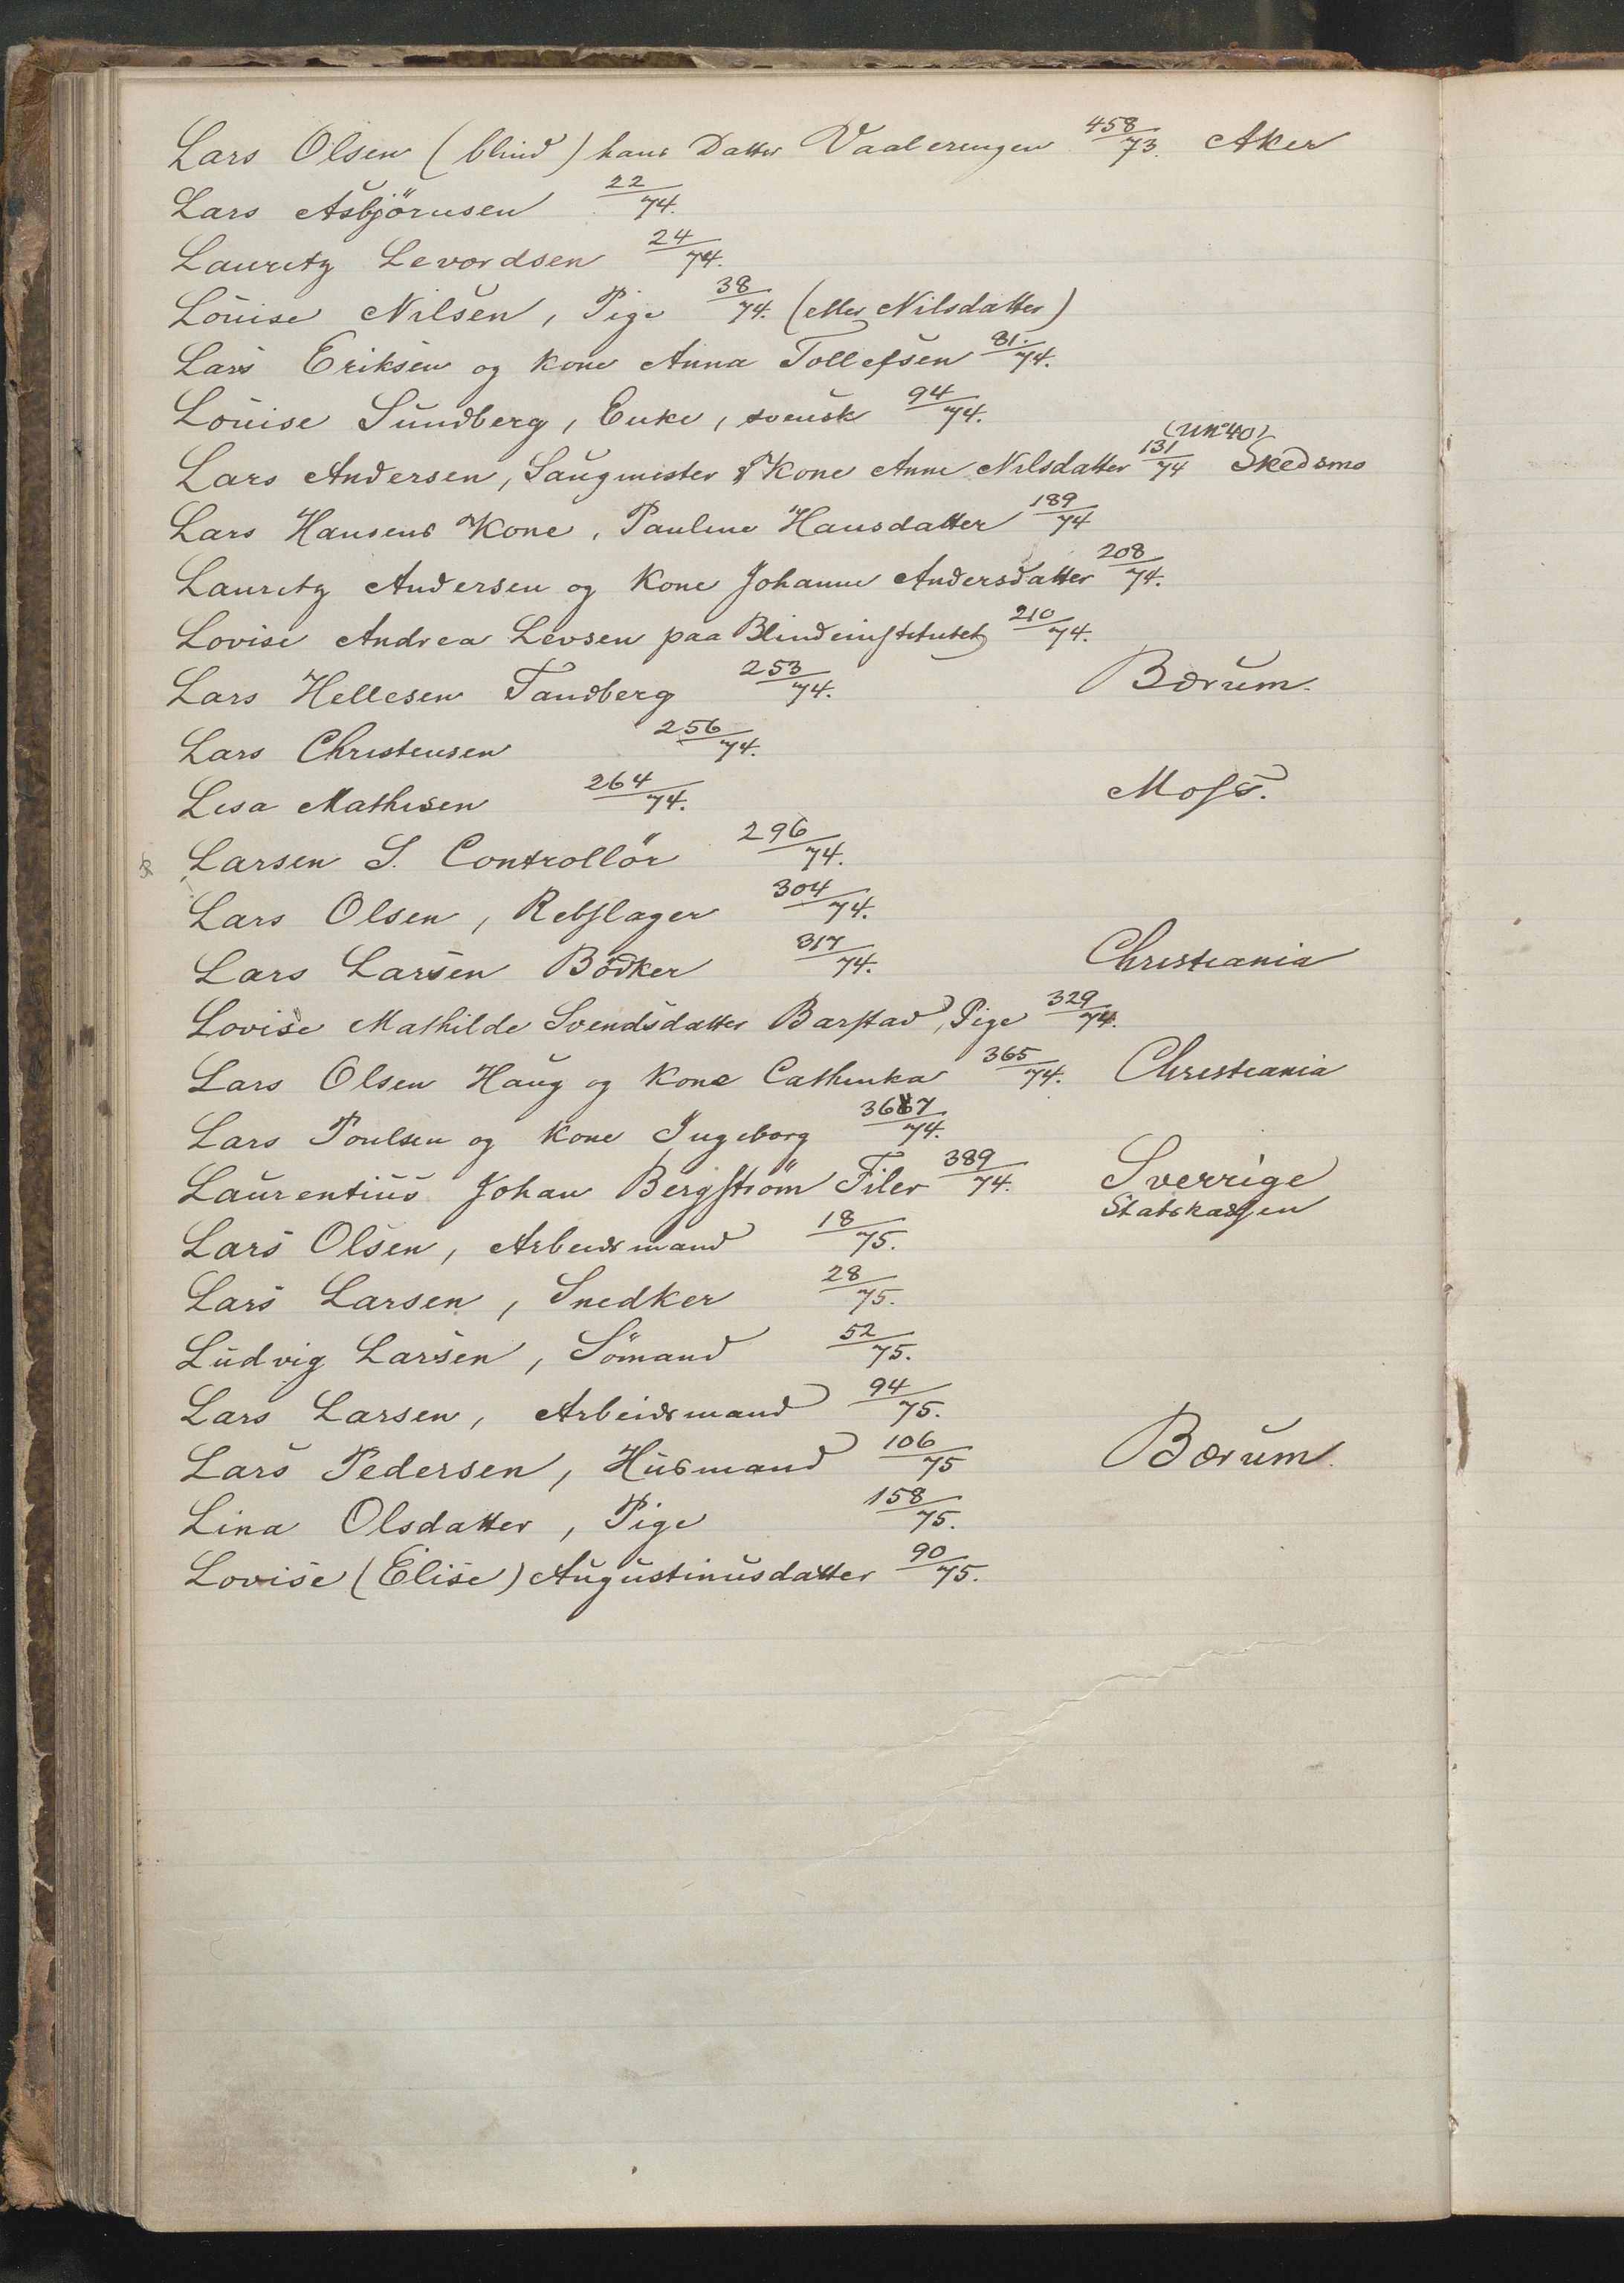 Lars Olsen (blind) hans Datter Vaalerengen 458/73. Aker
Lars Asbjörnsen 22/74.
Lauritz Levordsen 24/74.
Louise Nilsen, Pige 38/74. (eller Nilsdatter)
Lars Eriksen og Kone Anna Tollefsen 81./74.
Louise Sundberg, Enke, svensk 94/74.
Lars Andersen, Saugmester & Kone Anne Nilsdatter 131/74 (UK 40) Skedsmo
Lars Hansens Kone, Pauline Hansdatter 189/74
Lauritz Andersen og Kone Johanne Andersdatter 208/74.
Lovise Andrea Levsen paa Blindeinstitutet 210/74.
Lars Hellesen Tandberg 253/74. Bærum.
Lars Christensen 256/74.
Lisa Mathisen 264/74. Moss.
Larsen S. Controllör 296/74.
Lars Olsen, Rebslager 304/74.
Lars Larsen Bödker 317/74. Christiania
Lovise Mathilde Svendsdatter Barstad, Pige 329/74.
Lars Olsen Haug og Kone Cathinka 365/74. Christiania
Lars Poulsen og Kone Ingeborg 367/74.
Laurentius Johan Bergström Filer 389/74. Sverrige
Statskassen
Lars Olsen, Arbeidsmand 18/75.
Lars Larsen, Snedker 28/75.
Ludvig Larsen, Sömand 52/75.
Lars Larsen, Arbeidsmand 94/75.
Lars Pedersen, Husmand 106/75 Bærum.
Lina Olsdatter, Pige 158/75.
Lovise (Elise) Augustinusdatter 90/75.